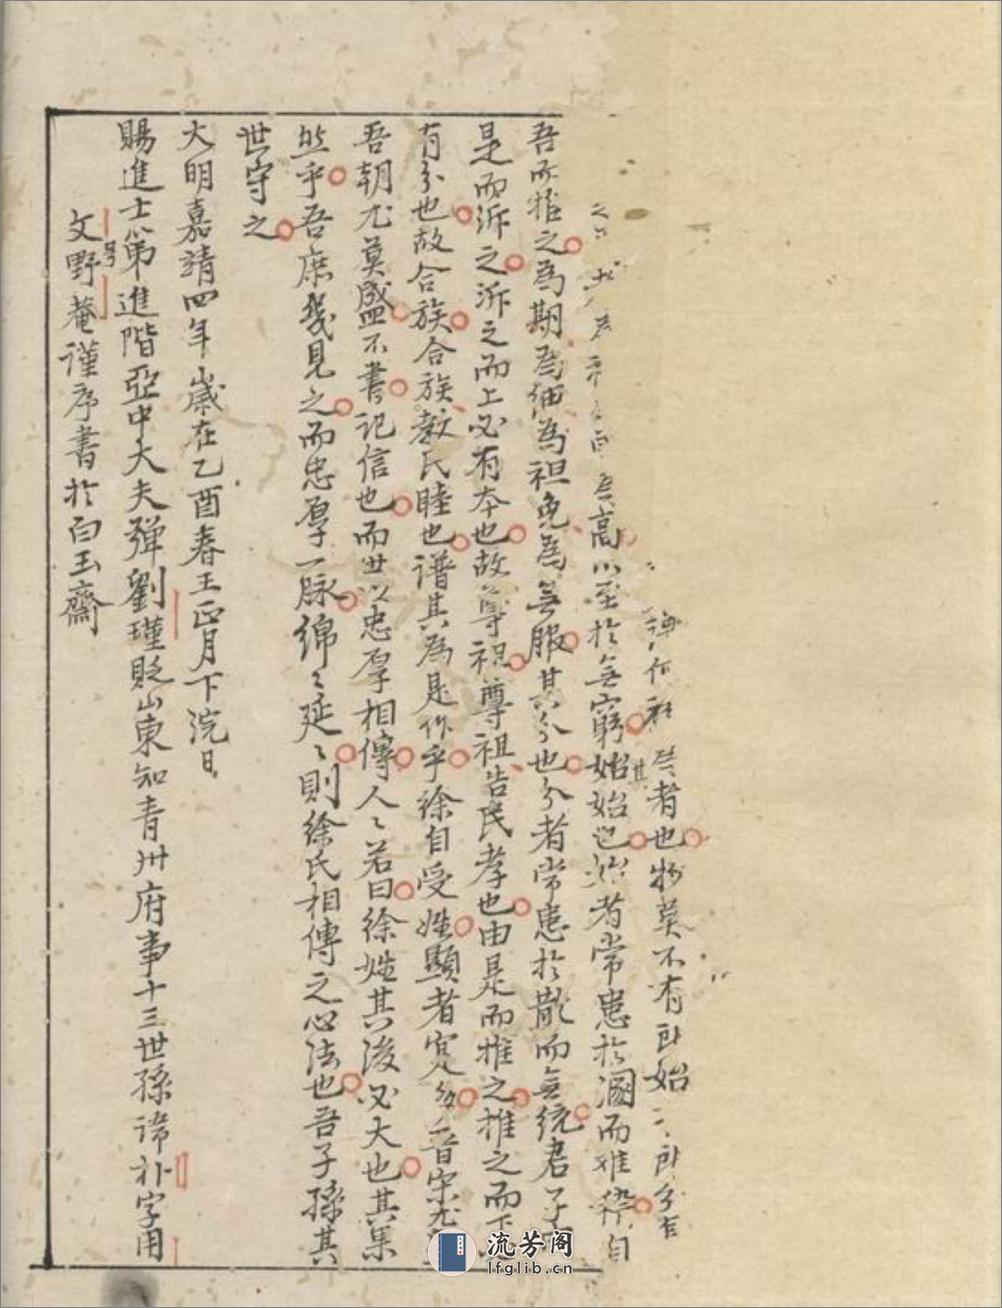 何 者也物莫不有所始 所分
高以至於無窮始其始也始者常患於溷而难稡自
吾而推之為期為緦為袒免為無服其分也分者常患於散而無统君子
是而泝之泝之而上必有本也故尊祖尊祖告民孝也由是而推之推之而下
有分也故合族合族教民睦也谱其為是作乎徐自受姓顯者寔多晋宋
吾朝尤莫盛不書记信也而世以忠厚相傳人々若曰徐姓其後必大也其果
然乎吾庶幾見之而忠厚一脉绵々延々則徐氏相傳之心法也吾子孫其
世守之
大明嘉靖四年歲在乙酉春王正月下浣日
賜進士第進階亞中大夫彈劉瑾貶山東知青州府事十三世孫諱朴字用
号文野菴谨序書於白玉齋
流芳阁
lfglib.cn